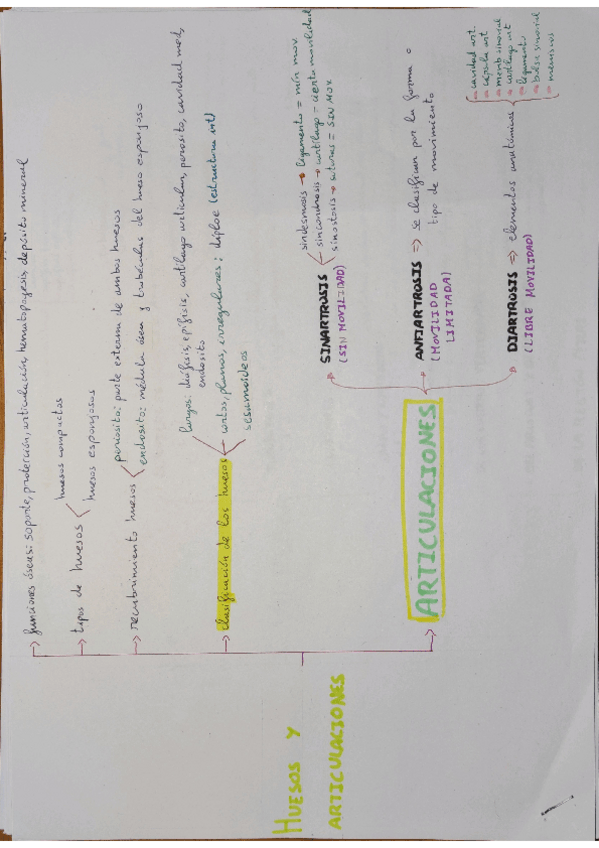 HUESOS Y
ARTICULACIONES
funciones óseas: soporte, protección, articulación, hematopoyesis, depósito mineral
tipos de huesos
huesos compactos
huesos esponjosos
recubrimiento huesos
periostio: parte externa de ambos huesos
endostio: médula ósea y trabéculas del hueso esponjoso
clasificación de los huesos
largos: diáfisis, epífisis, cartílago articular, periostio, cavidad med,
endostio
cortos, planos, irregulares; diploe (estructura int)
sesamoideos
ARTICULACIONES
SINARTROSIS
(SIN MOVILIDAD)
sindesmosis → ligamento = mín mov.
sincondrosis → cartílago = cierta movilidad
sinostosis → suturas = SIN MOV
ANFIARTROSIS => se clasifican por la forma o
(MOVILIDAD tipo de movimiento
LIMITADA)
DIARTROSIS => elementos anatómicos
(LIBRE MOVILIDAD)
cavidad art.
cápsula art
memb sinovial
cartílago art
ligamento
bolsa sinovial
meniscos